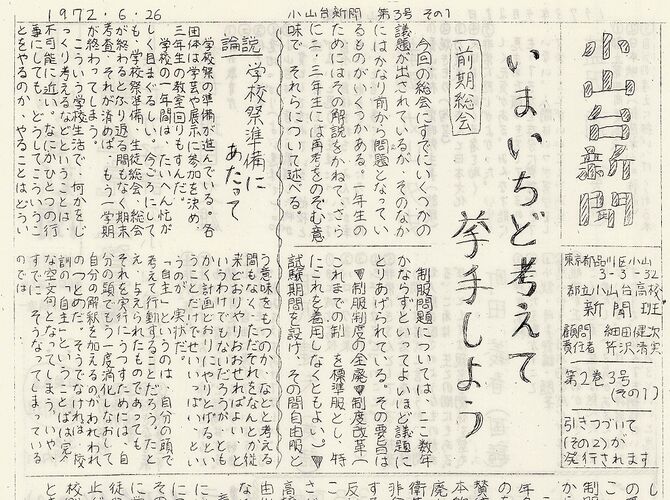 1972.6.26
小山台新聞 第3号 その1
小山台新聞
東京都品川区小山
3-3-32
都立小山台高校
新聞班
顧問 細田健次
責任者 芹沢清実
第2巻3号
(その1)
引きつづいて
(その2)が
発行されます
いまいちど考えて
挙手しよう
前期総会
今回の総会にすでにいくつかの
議題が出されているが、そのなか
にはかなり前から問題となってい
るものがいくつかある。一年生の
ためにはその解説をかねて、さら
に二、三年生には再考をのぞむ意
味で、それらについて述べる。
制服問題については、ここ数年
かならずといってよいほど議題に
とりあげられている。その要旨は
▼制服制度の全廃▼制度改革(
これまでの制 を標準服とし、特
にこれを着用しなくともよい。)▼
試験期間を設け、その間自由服と
論説 学校祭準備に
あたって
学校祭の準備が進んでいる。各
団体は学芸や展示に参加を決め
三年生の教室回りもすんだ。
学校の一年間は、たいへん忙が
しく目まぐるしい。今ごろにして
も、学校祭準備、生徒総会、総会
が終わるとふり返る間もなく期末
考査、それが済めば、もう一学期
が終わってしまう。
こういう学校生活で、何かをじ
っくり考えるなどということは
不可能に近い。なにかひとつの行
事にしても、どうしてこういうこ
とをやるのか、やることはどうい
う意味をもつのか、などと考える
間もなく、ただそれをなんとか従
来どおりやりおおせればよい、と
いうわけでもないだろうが、とも
かく計画どおりにやりとげるとい
うことだけでせいいっぱい、とい
うのが、実状だ。
「自主」というのは、自分の頭で
考えて行動することだろう。たと
え、与えられたものであっても、
それを実行にうつすためには、自
分の頭でもう一度消化しなおして
自分の解釈を加えるのがわれわれ
のつとめだ。そうでなければ、校
訓の「自主」ということばは完
な空文句となってしまう。いや、
すでに、そうなってしまっている
のでは